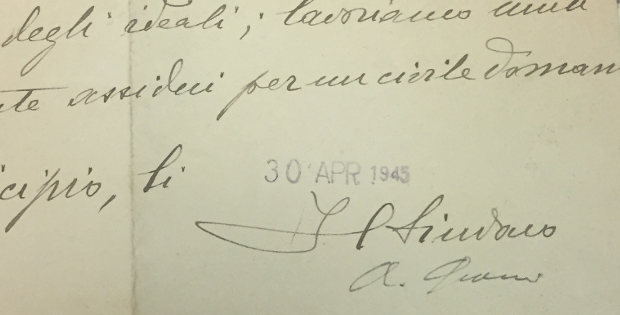 degli ideali; lavoriamo
assidui per un civile doman
li
30 APR 1945
Il Sindaco
A.